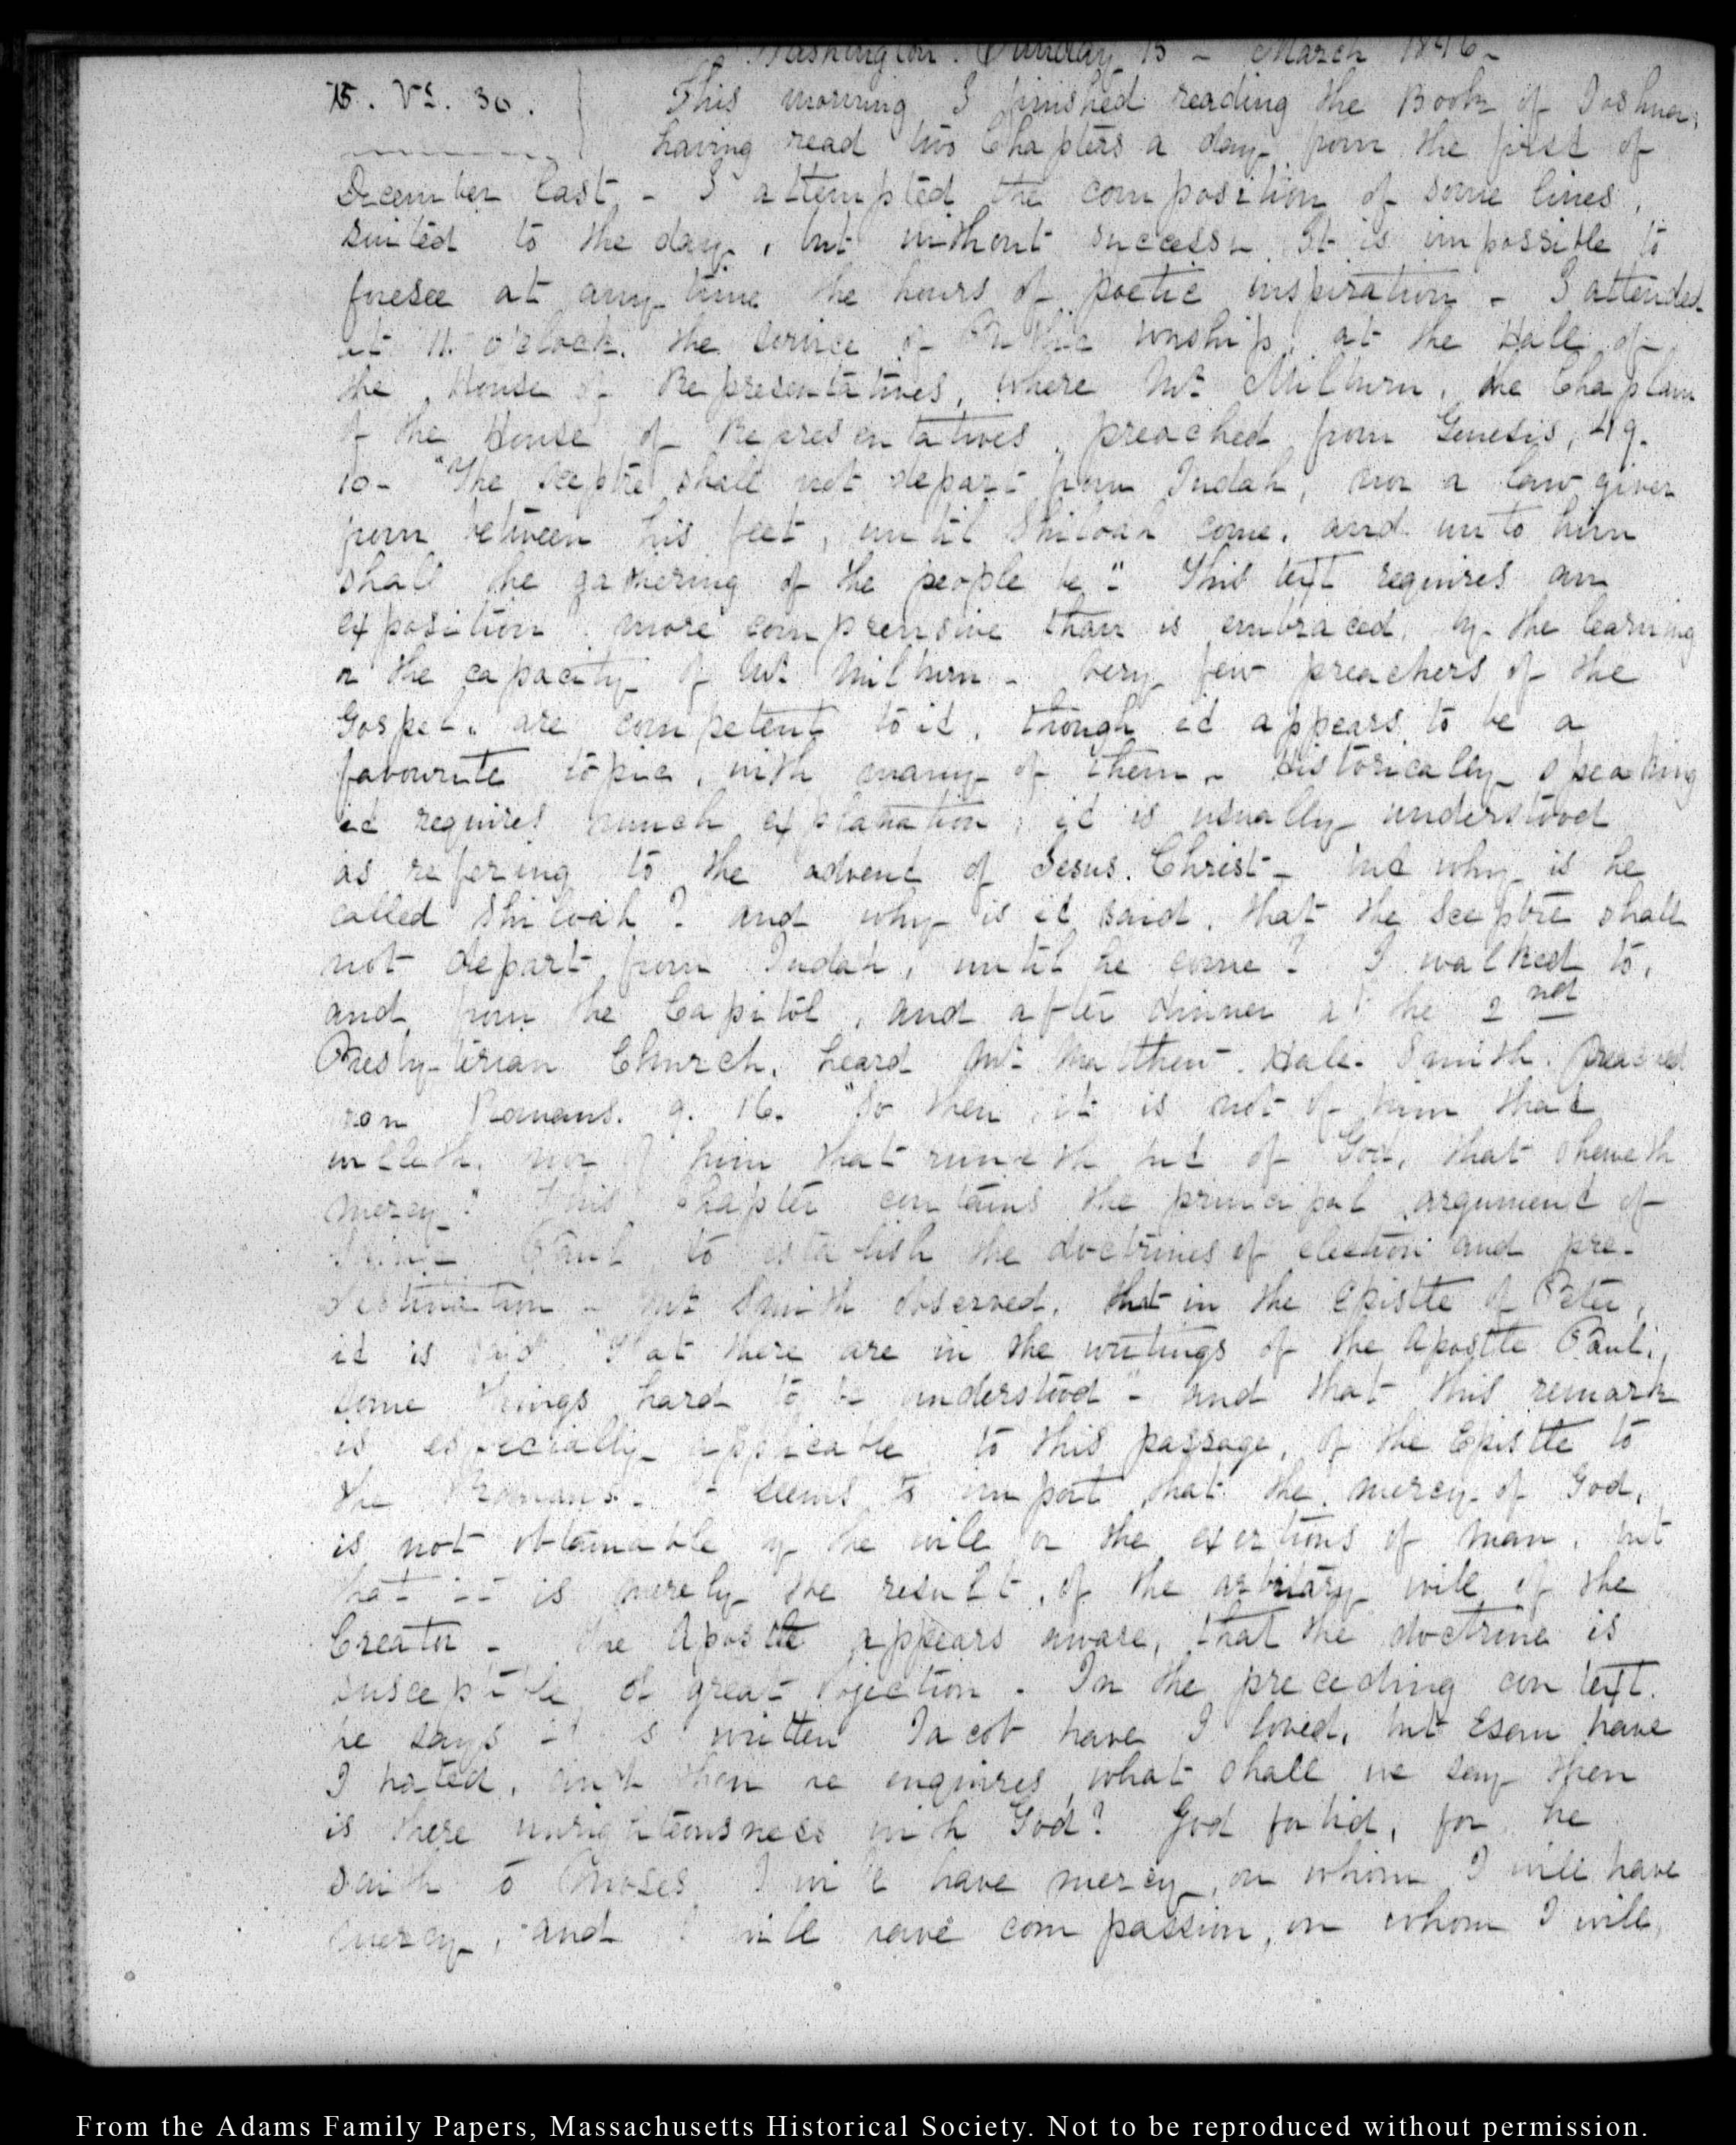 Washington. Sunday 15 - March 1846-
15. V½. 30. This morning I finished reading the Book of Joshua,
having read two Chapters a day from the first of
December last - I attempted the composition of some lines,
suited to the day, but without success. It is impossible to
foresee at any time the hours of poetic inspiration - I attended
at 11. o'clock. the service of Public worship, at the Hall of
the House of Representatives, where Mr Milburn, the Chaplain
of the House of Representatives, preached from Genesis, 49.
10- "The sceptre shall not depart from Judah, nor a law giver
from between his feet, until Shiloah come, and unto him
shall the gathering of the people be." This text requires an
exposition more comprensive than is embraced, by the learning
or the capacity of Mr Milburn - very few preachers of the
Gospel. are competent to it, though it appears to be a
favourite topic, with many of them. Historically speaking
it requires much explanation, it is usually understood
as refering to the advent of Jesus. Christ - but why is he
called Shiloah? and why is it said, that the sceptre shall
not depart from Judah, until he come? I walked to,
and from the Capitol, and after dinner at the 2nd
Presbyterian Church, heard Mr Matthew. Hale. Smith. preached
from Romans. 9. 16. "So then it is not of him that
willeth, nor of him that runneth but of God, that sheweth
mercy." This Chapter contains the principal argument of
Saint Paul to establish the doctrines of election and pre-
destination - Mr Smith observed, that in the Epistle of Peter,
it is said "that there are in the writings of the Apostle Paul,
some things hard to be understood" - and that this remark
is especially applicable to this passage, of the Epistle to
the Romans. It seems to import that the mercy of God,
is not obtainable by the will or the exertions of man, but
that it is merely the result, of the arbitary will of the
Creator - The Apostle appears aware, that the doctrine is
susceptible of great objection - In the preceding context.
he says it is written Jacob have I loved, but Esau have
I hated, and then he enquires what shall we say then
is there unrighteousness with God? God forbid, for he
saith to Moses I will have mercy, on whom I will have
mercy, and I will have compassion, on whom I will,
From the Adams Family Papers, Massachusetts Historical Society. Not to be reproduced without permission.